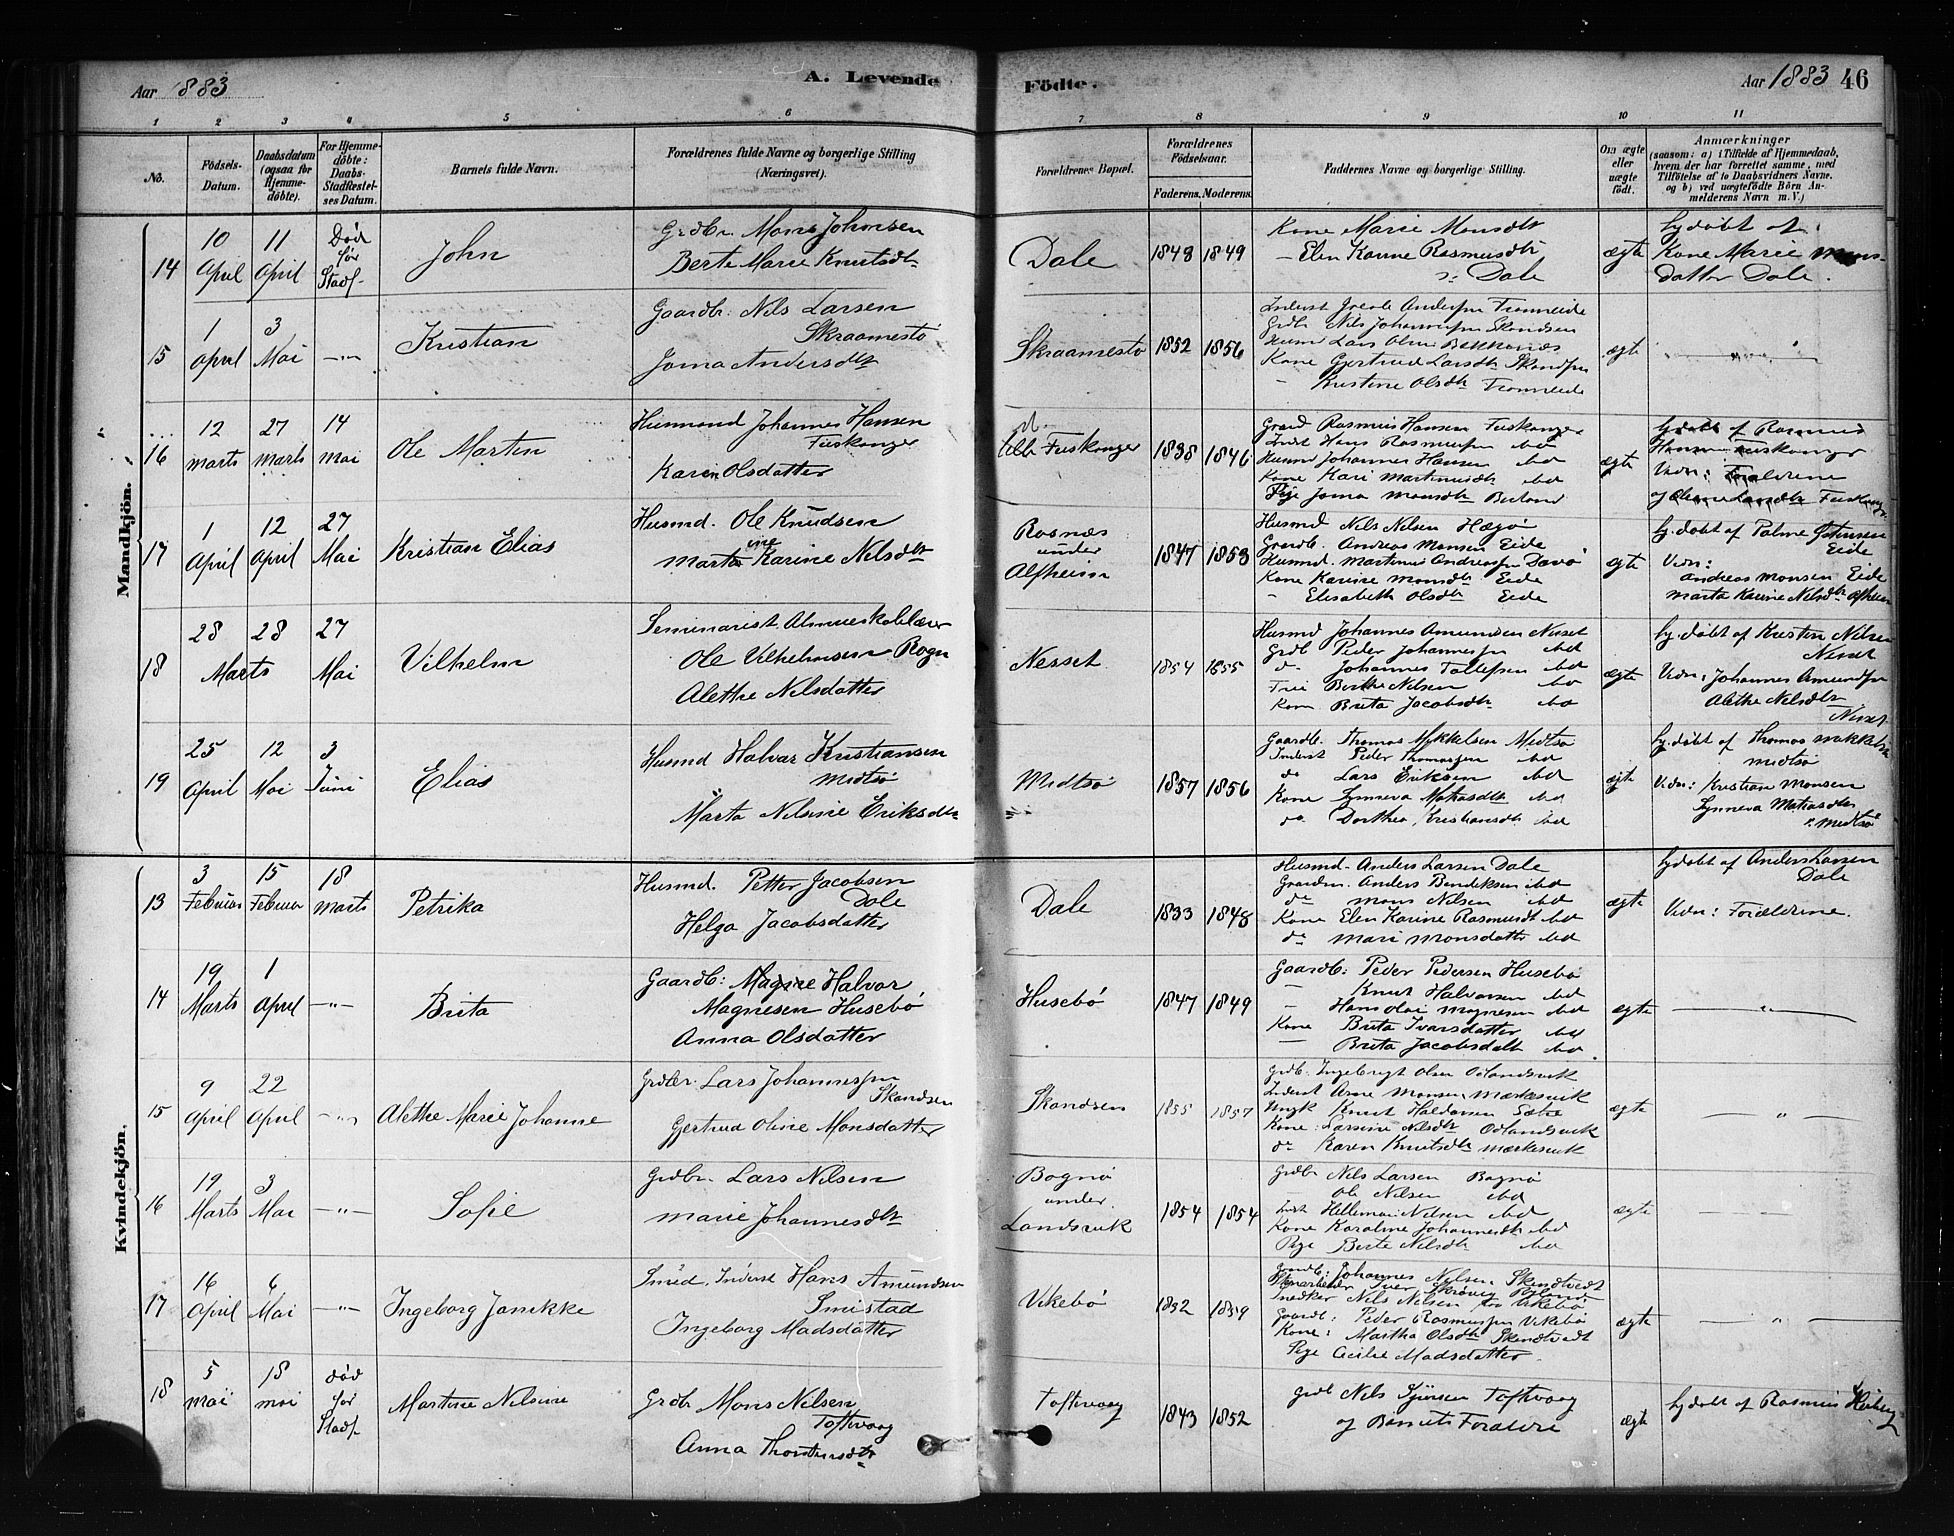 Aar 1883
A. Levende
Födte.
Aar 1883 46
1 2 3 4 5 6 7 8 9 10 11
No.
Födsels-
Datum.
Daabsdatum
(ogsaa for
Hjemme-
döbte).
For Hjemme-
döbte:
Daabs-
Stadfæstel-
ses Datum.
Barnets fulde Navn.
Forældrenes fulde Navne og borgerlige Stilling
(Næringsvei).
Forældrenes Bopæl.
Forældrenes
Födselsaar.
Faderens. Moderens.
Faddernes Navne og borgerlige Stilling.
Om ægte
eller
uægte
födt.
Anmærkninger
(saasom: a) i Tilfælde af Hjemmedaab,
hvem der har forrettet samme, med
Tilföielse af to Daabsvidners Navne,
og b) ved uægtefödte Börn An-
melderens Navn m. V.)
Mandkjön.
14
10
April
11
April
Död
før
Stadf.
John
Grdbr. Mons Johnsen
Berte Marie Knutsdtr
Dale
1848 1849
Kone Marie Monsdtr
– Elen Karine Rasmusdtr
Dale
ægte
hj.döbt af
Kone Marie Mons-
datter Dale.
15
1
April
3
Mai
–"–
Kristian
Gaardbr. Nils Larsen
Skraamestö
Joma Andersdtr
Skraamestö
1852 1856
Grdbr Nils Johannessen Skandsen
Kone Gjertrud Larsdtr
– Kristine Olsdtr
ægte
–"–
16
12
marts
27
marts
14
mai
Ole Martin
Husmand Johannes Hansen
Fuskanger
Karen Olsdatter
Fuskanger
1838 1846
Gaard Rasmus Hansen Fuskanger
Indst Hans Rasmussen ibd
Husmd Johannes Hansen ibd
Kone Kari Martinusdtr ibd
Pige Joma Monsdtr
ægte
hj.döbt af Rasmus
Hansen Fuskanger
Vidn: Forældrene
17
1
April
12
April
27
Mai
Kristian Elias
Husmd. Ole Knudsen
ine
Marta Karine Nilsdtr
Rosnæs
under
Alfheim
1847 1853
Husmd Nils Nilsen Hægö
Gaardb. Andreas Monsen Eide
Husmd. Martinus Andreassen Davö
Kone Karine Monsdtr Eide
– Elisabeth Olsdtr Eide
ægte
hj.döbt af Palme
Eide
Vidn:
Andreas Monsen Eide
Marta Karine Nilsdtr Alfheim
18
28
28
Marts
27
Mai
Vilhelm
Seminarist. Almueskolelærer
Ole Vilhelmsen Rogn
Alethe Nilsdatter
Nesset
1854 1855
Husmd Johannes Amundsen Nesset
Grdb Peder Johannessen ibd
do Johannes Tollefsen ibd
Berthe Nilsen ibd
Kone Brita Jacobsdtr ibd
ægte
hj.döbt af Kristen Nilsen
Nesset
Vidn: Johannes Amundsen
Alethe Nilsdtr
Nesset
19
25
April
12
Mai
3
Juni
Elias
Husmd Halvor Kristiansen
Midtsö
Marta Nilsine Eriksdtr
Midtsö
1857 1856
Gaardb. Thomas Mikkelsen Midtsö
Inderst Peder Thomassen ibd
do Lars Eriksen ibd
Kone Synneva Matiasdtr ibd
do Dorthea Kristiansdtr ibd
ægte
hj.döbt af Thomas Mikkelsen
Midtsö
Vidn: Kristian Monsen
Synneva Matiasdtr
Midtsö
Kvindekjön.
13
3
Februar
15
Februar
18
Marts
Petrika
Husmd. Petter Jacobsen
Dale
Helga Jacobsdatter
Dale
1833 1848
Husmd. Anders Larsen Dale
Gaardm. Anders Bendiksen ibd
do Mons Nilsen ibd
Kone Elen Karine Rasmusdtr ibd
do Mari Monsdatter ibd
ægte
hj.döbt af Anders Larsen
Dale
Vidn: Forældrene.
14
19
Marts
1
April
–"–
Brita
Gaardb: Magne Halvor
Magnesen Husebö
Anna Olsdatter
Husebö
1847 1849
Gaardb: Peder Pedersen Husebö
– Knut Halvorsen ibd
– Hans Olai Magnesen ibd
Kone Brita Ivarsdatter ibd
– Brita Jacobsdatt ibd.
ægte
–"–
15
9
April
22
April
–"–
Alethe Marie Johanne
Grdbr. Lars Johannessen
Skandsen
Gjertrud Oline Monsdatter
Skandsen
1855 1857
Grdb. Ingebrigt Olsen Odlandsvik
Inderst Arne Monsen Mærkesvik
Ungk Knut Haldorsen Sætre
Kone Larsine Nilsdtr Odlandsvik
do Karen Knutsdtr Mærkesvik
ægte
–"–
16
19
Marts
3
Mai
–"–
Sofie
Grdbr. Lars Nilsen
Marie Johannesdtr
Bognö
under
Landsvik
1854 1854
Grdbr Nils Larsen Bognö
– Ole Nilsen ibd
Indst Nilsen ibd
Kone Karoline Johannesdtr ibd
Pige Berte Nilsdtr ibd
ægte
17
16
April
6
Mai
–"–
Ingeborg Janikke
Smed, Inderst Hans Amundsen
Smistad
Ingeborg Madsdatter
Vikebö
1832 1839
Gaardb: Johannes Nilsen Skendtvedt
Snedker Nils Nilsen Vikebö
Gaardb: Peder Rasmussen Vikebö
Kone: Martha Olsdtr Skendtvedt
Pige Cecilie Madsdatter.
ægte
–"–
18
5
mai
18
mai
död
før
Stadf.
Martine Nilsine
Grdb Mons Nilsen
Toftevaag
Anna Thorstensdtr
Toftevaag
1843 1852
Grdb Nils Sjursen Toftevaag
og Barnets Forældre
ægte
hj.döbt af Rasmus